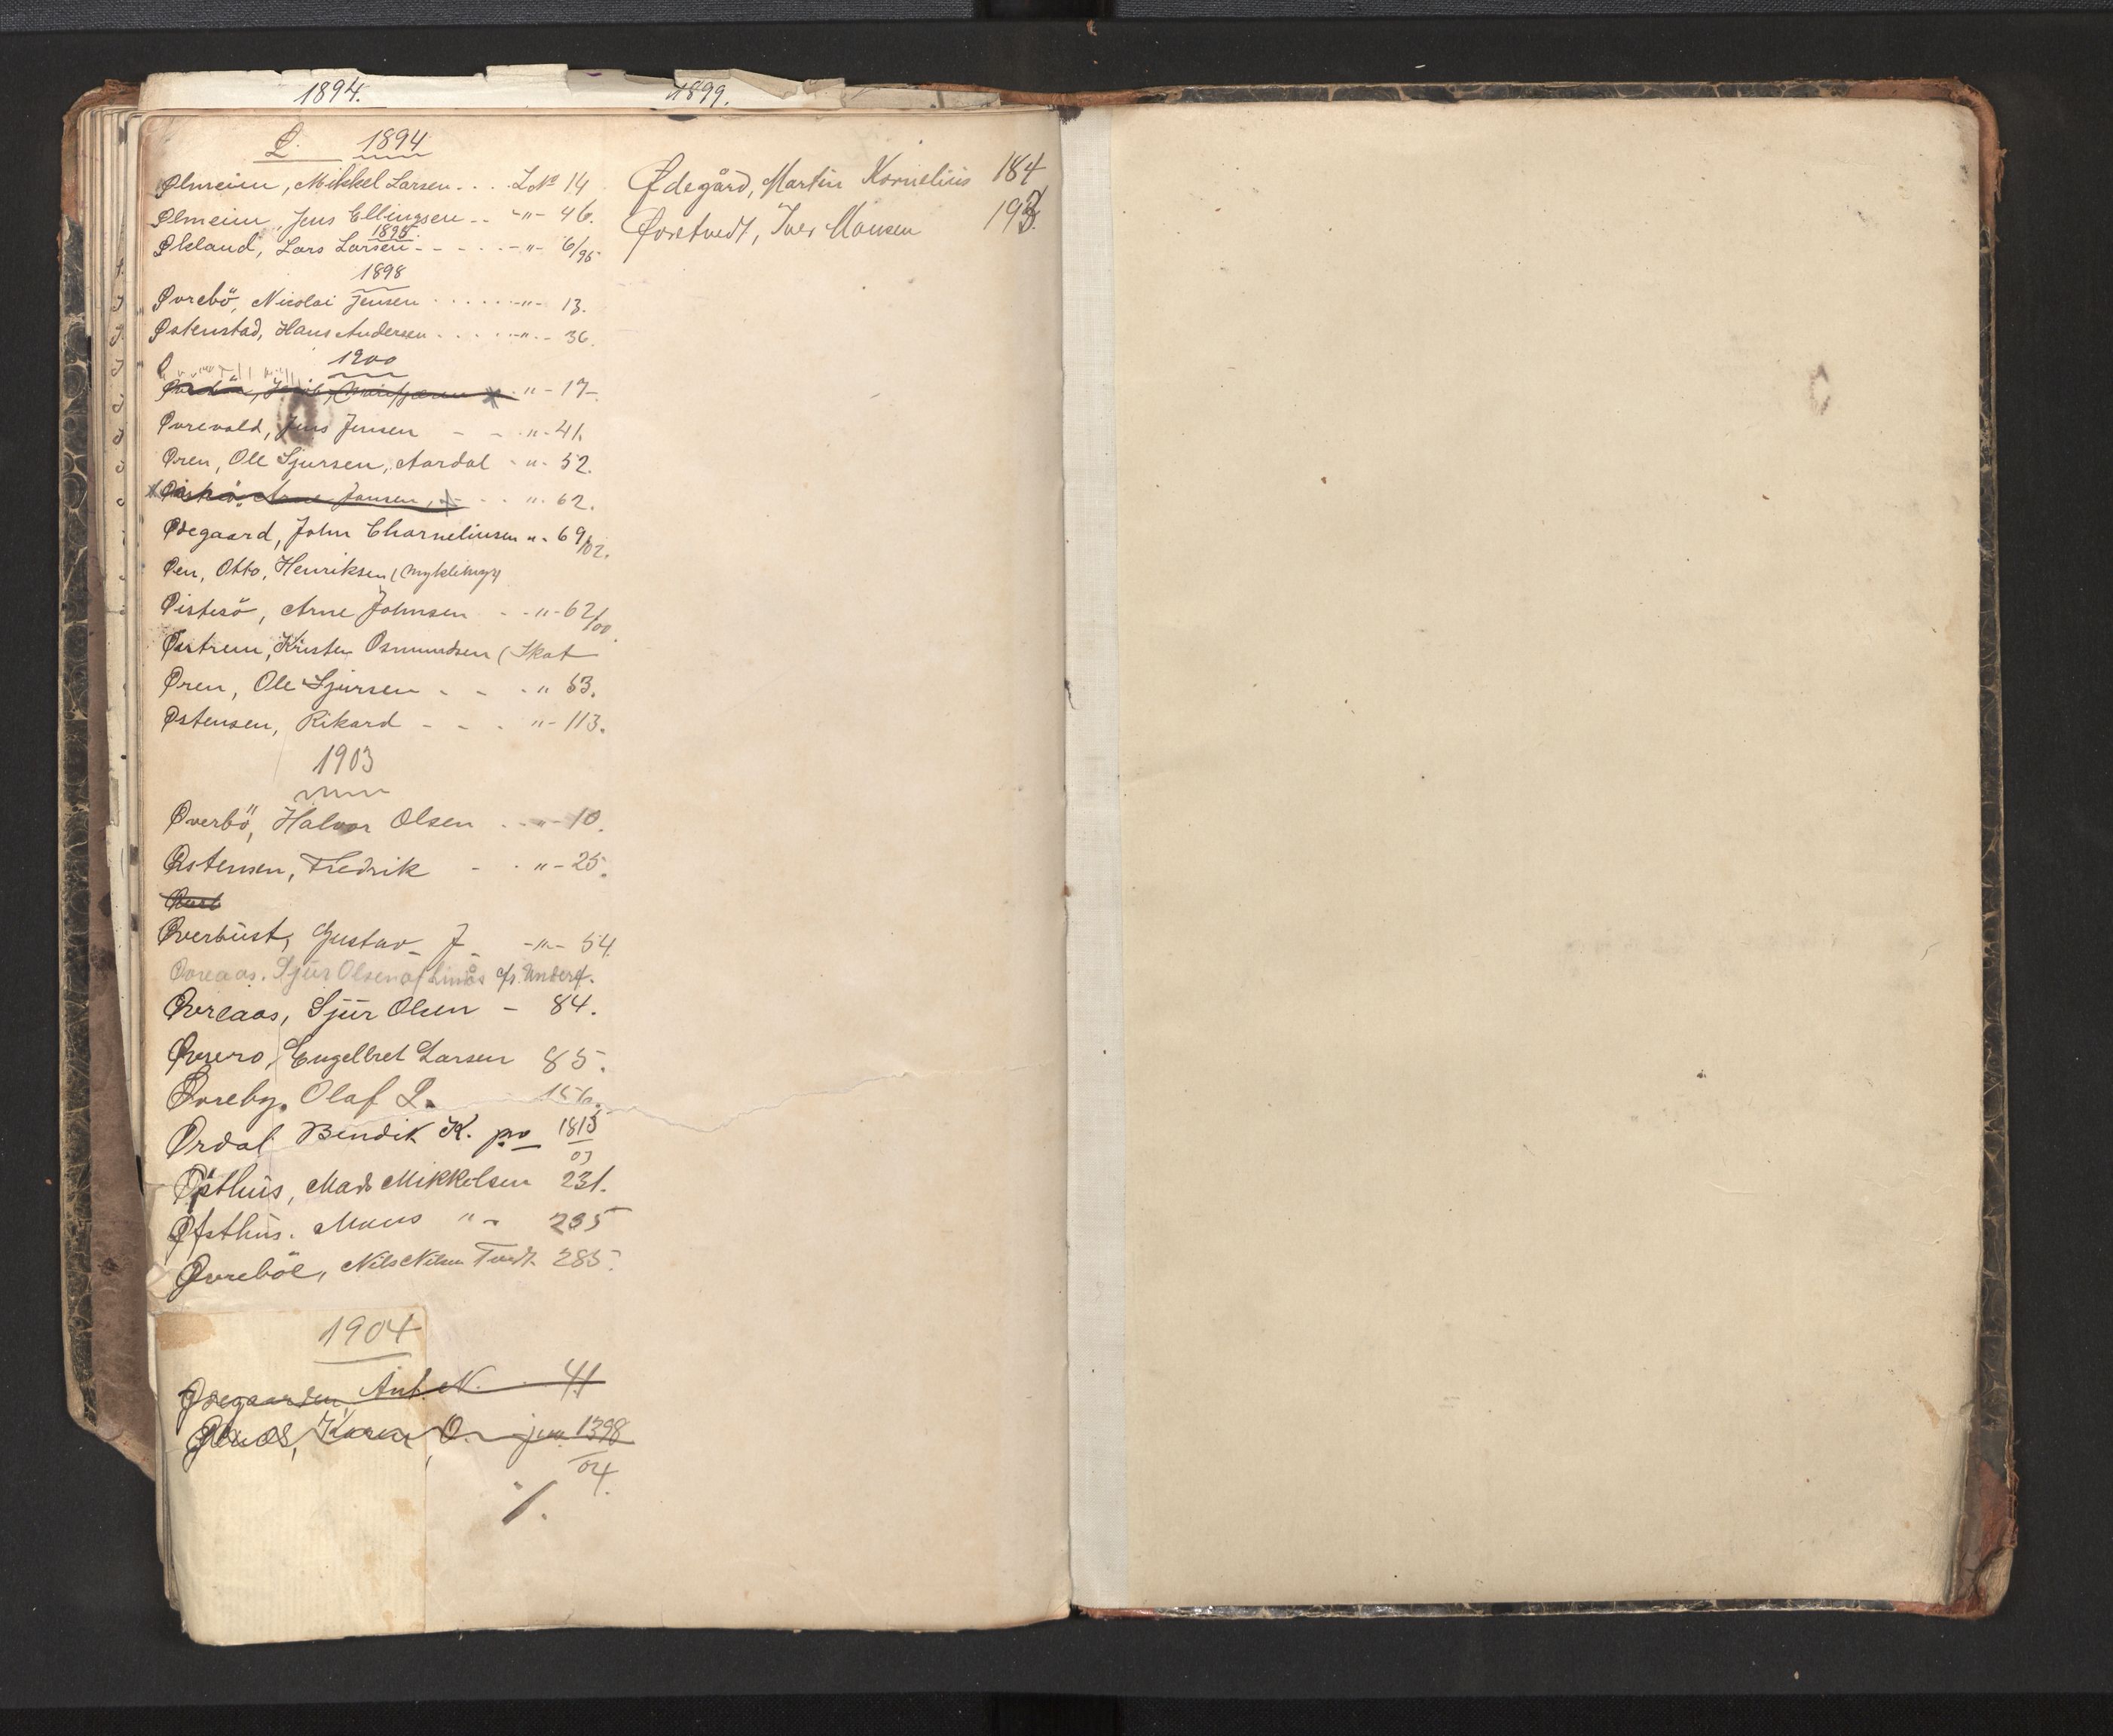 1894. 1899.
Ø. 1894
Ølmeim, Mikkel Larsen . . . . L. № 14
Ølmeim, Jens Ellingsen - - -"- 46.
1895.
Økland, Lars Larsen - - - - - -"- 6/95
1898
Øvrebö, Nicolai Jensen . . . . . -"- 13.
Østenstad, Hans Andersen . . . . -"- 36.
1900
"- 17-
Øvrevold, Jens Jensen - - "- 41.
Øren, Ole Sjursen, Aardal - "- 52.
Arne Jansen, - . . "- 62.
Ødegaard, John Chorneliusen "- 69/02.
Øen, Otto, Henriksen (Myklebust)
Øistesö, Arne Johnsen - - "- 62/00.
Østrem, Kristen Osmundsen (Skat
Øren, Ole Sjursen - - - " 53.
Østensen, Rikard - - . "- 113.
1903
Øverbö, Halvor Olsen . . -"- 10.
Østensen, Fredrik - . "- 25.
Øverbust, Gustav J. -"- 54
Øvreaas, Sjur Olsen af Lindås cfr. Underf.
Øvreaas, Sjur Olsen - 84.
Øvrero, Engelbret Larsen 85.
Øvreby, Olaf L. 156.
Ørdal Bendik K. pro 1815/03
Østhus, Mads Mikkelsen 231.
Øfsthus. Mons " - 235
Øvreböe, Nils Nilsen Tvedt 285.
1904
Ødegaarden, Ant. N. . . 41
Karen O. - jno. 1398/04.
./.
Ødegård, Martin Kornelius 184
Øvretvedt, Iver Monsen 193.